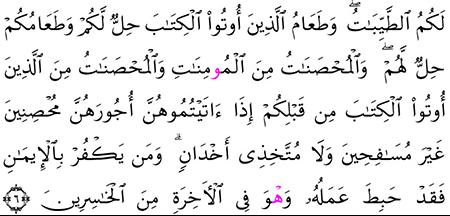 لَكُمُ ٱلطَّيِّبَٰتُ ۖ وَطَعَامُ ٱلَّذِينَ أُوتُوا۟ ٱلْكِتَٰبَ حِلٌّ لَّكُمْ وَطَعَامُكُمْ
حِلٌّ لَّهُمْ ۖ وَٱلْمُحْصَنَٰتُ مِنَ ٱلْمُومِنَٰتِ وَٱلْمُحْصَنَٰتُ مِنَ ٱلَّذِينَ
أُوتُوا۟ ٱلْكِتَٰبَ مِن قَبْلِكُمْ إِذَا ءَاتَيْتُمُوهُنَّ أُجُورَهُنَّ مُحْصِنِينَ
غَيْرَ مُسَٰفِحِينَ وَلَا مُتَّخِذِىٓ أَخْدَانٍ ۗ وَمَن يَكْفُرْ بِٱلْإِيمَٰنِ
فَقَدْ حَبِطَ عَمَلُهُۥ وَهْوَ فِى ٱلْأَخِرَةِ مِنَ ٱلْخَٰسِرِينَ ﴿٦﴾